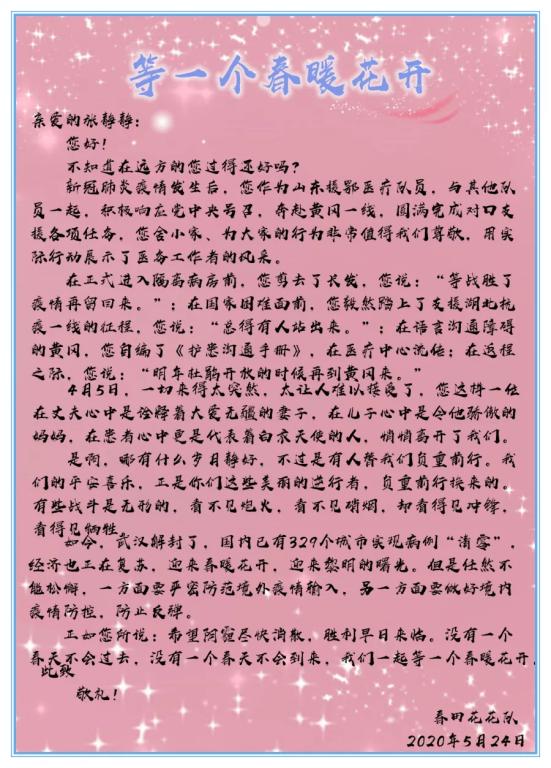 等一个春暖花开
亲爱的张静静：
您好！
不知道在远方的您过得还好吗？
新冠肺炎疫情发生后，您作为山东援鄂医疗队员，与其他队
员一起，积极响应党中央号召，奔赴黄冈一线，圆满完成对口支
援各项任务，您舍小家、为大家的行为非常值得我们尊敬，用实
际行动展示了医务工作者的风采。
在正式进入隔离病房前，您剪去了长发，您说：“等战胜了
疫情再留回来。”；在国家困难面前，您毅然踏上了支援湖北抗
疫一线的征程，您说：“总得有人站出来。”；在语言沟通障碍
的黄冈，您自编了《护患沟通手册》，在医疗中心流传；在返程
之际，您说：“明年杜鹃开放的时候再到黄冈来。”
4月5日，一切来得太突然，太让人难以接受了，您这样一位
在丈夫心中是诠释着大爱无疆的妻子，在儿子心中是令他骄傲的
妈妈，在患者心中更是代表着白衣天使的人，悄悄离开了我们。
是啊，哪有什么岁月静好，不过是有人替我们负重前行。我
们的平安喜乐，正是你们这些美丽的逆行者，负重前行换来的。
有些战斗是无形的，看不见炮火，看不见硝烟，却看得见冲锋，
看得见牺牲
如今，武汉解封了，国内已有329个城市实现病例“清零”，
经济也正在复苏，迎来春暖花开，迎来黎明的曙光。但是仍然不
能松懈，一方面要严密防范境外疫情输入，另一方面要做好境内
疫情防控，防止反弹。
正如您所说：希望阴霾尽快消散，胜利早日来临。没有一个
春天不会过去，没有一个春天不会到来，我们一起等一个春暖花开，
此致
敬礼！
春田花花队
2020年5月24日